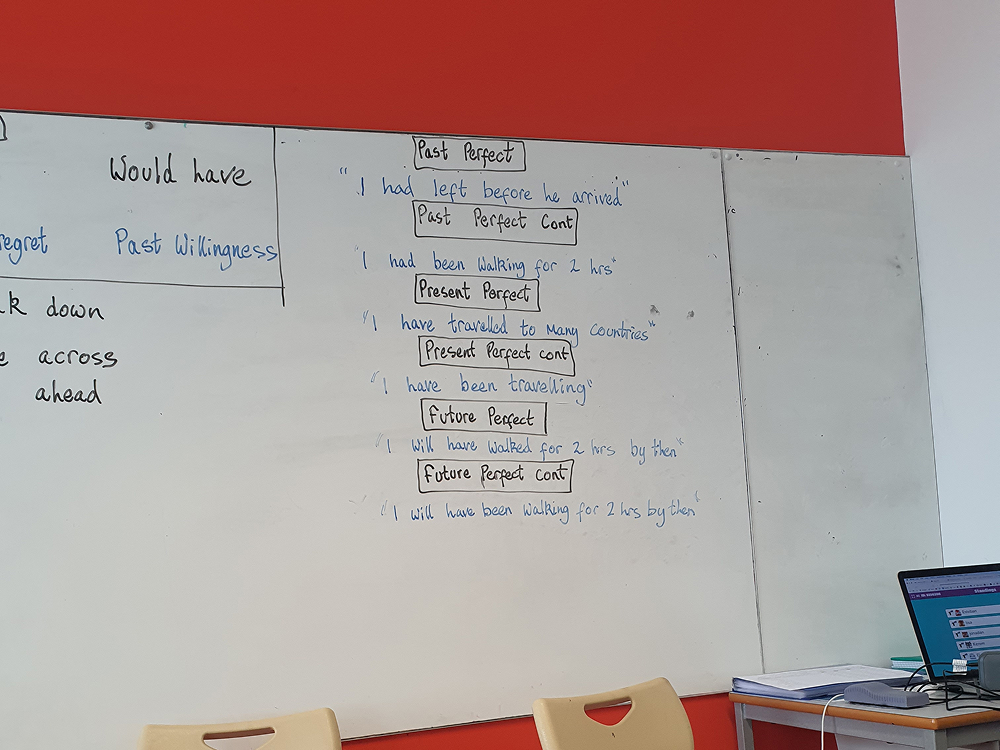 Would have
regret Past Willingness
down
across
ahead
Past Perfect
"I had left before he arrived"
Past Perfect Cont
"I had been walking for 2 hrs"
Present Perfect
"I have travelled to many countries"
Present Perfect cont
"I have been travelling"
Future Perfect
"I will have walked for 2 hrs by then"
Future Perfect cont
"I will have been walking for 2 hrs by then"
Standings